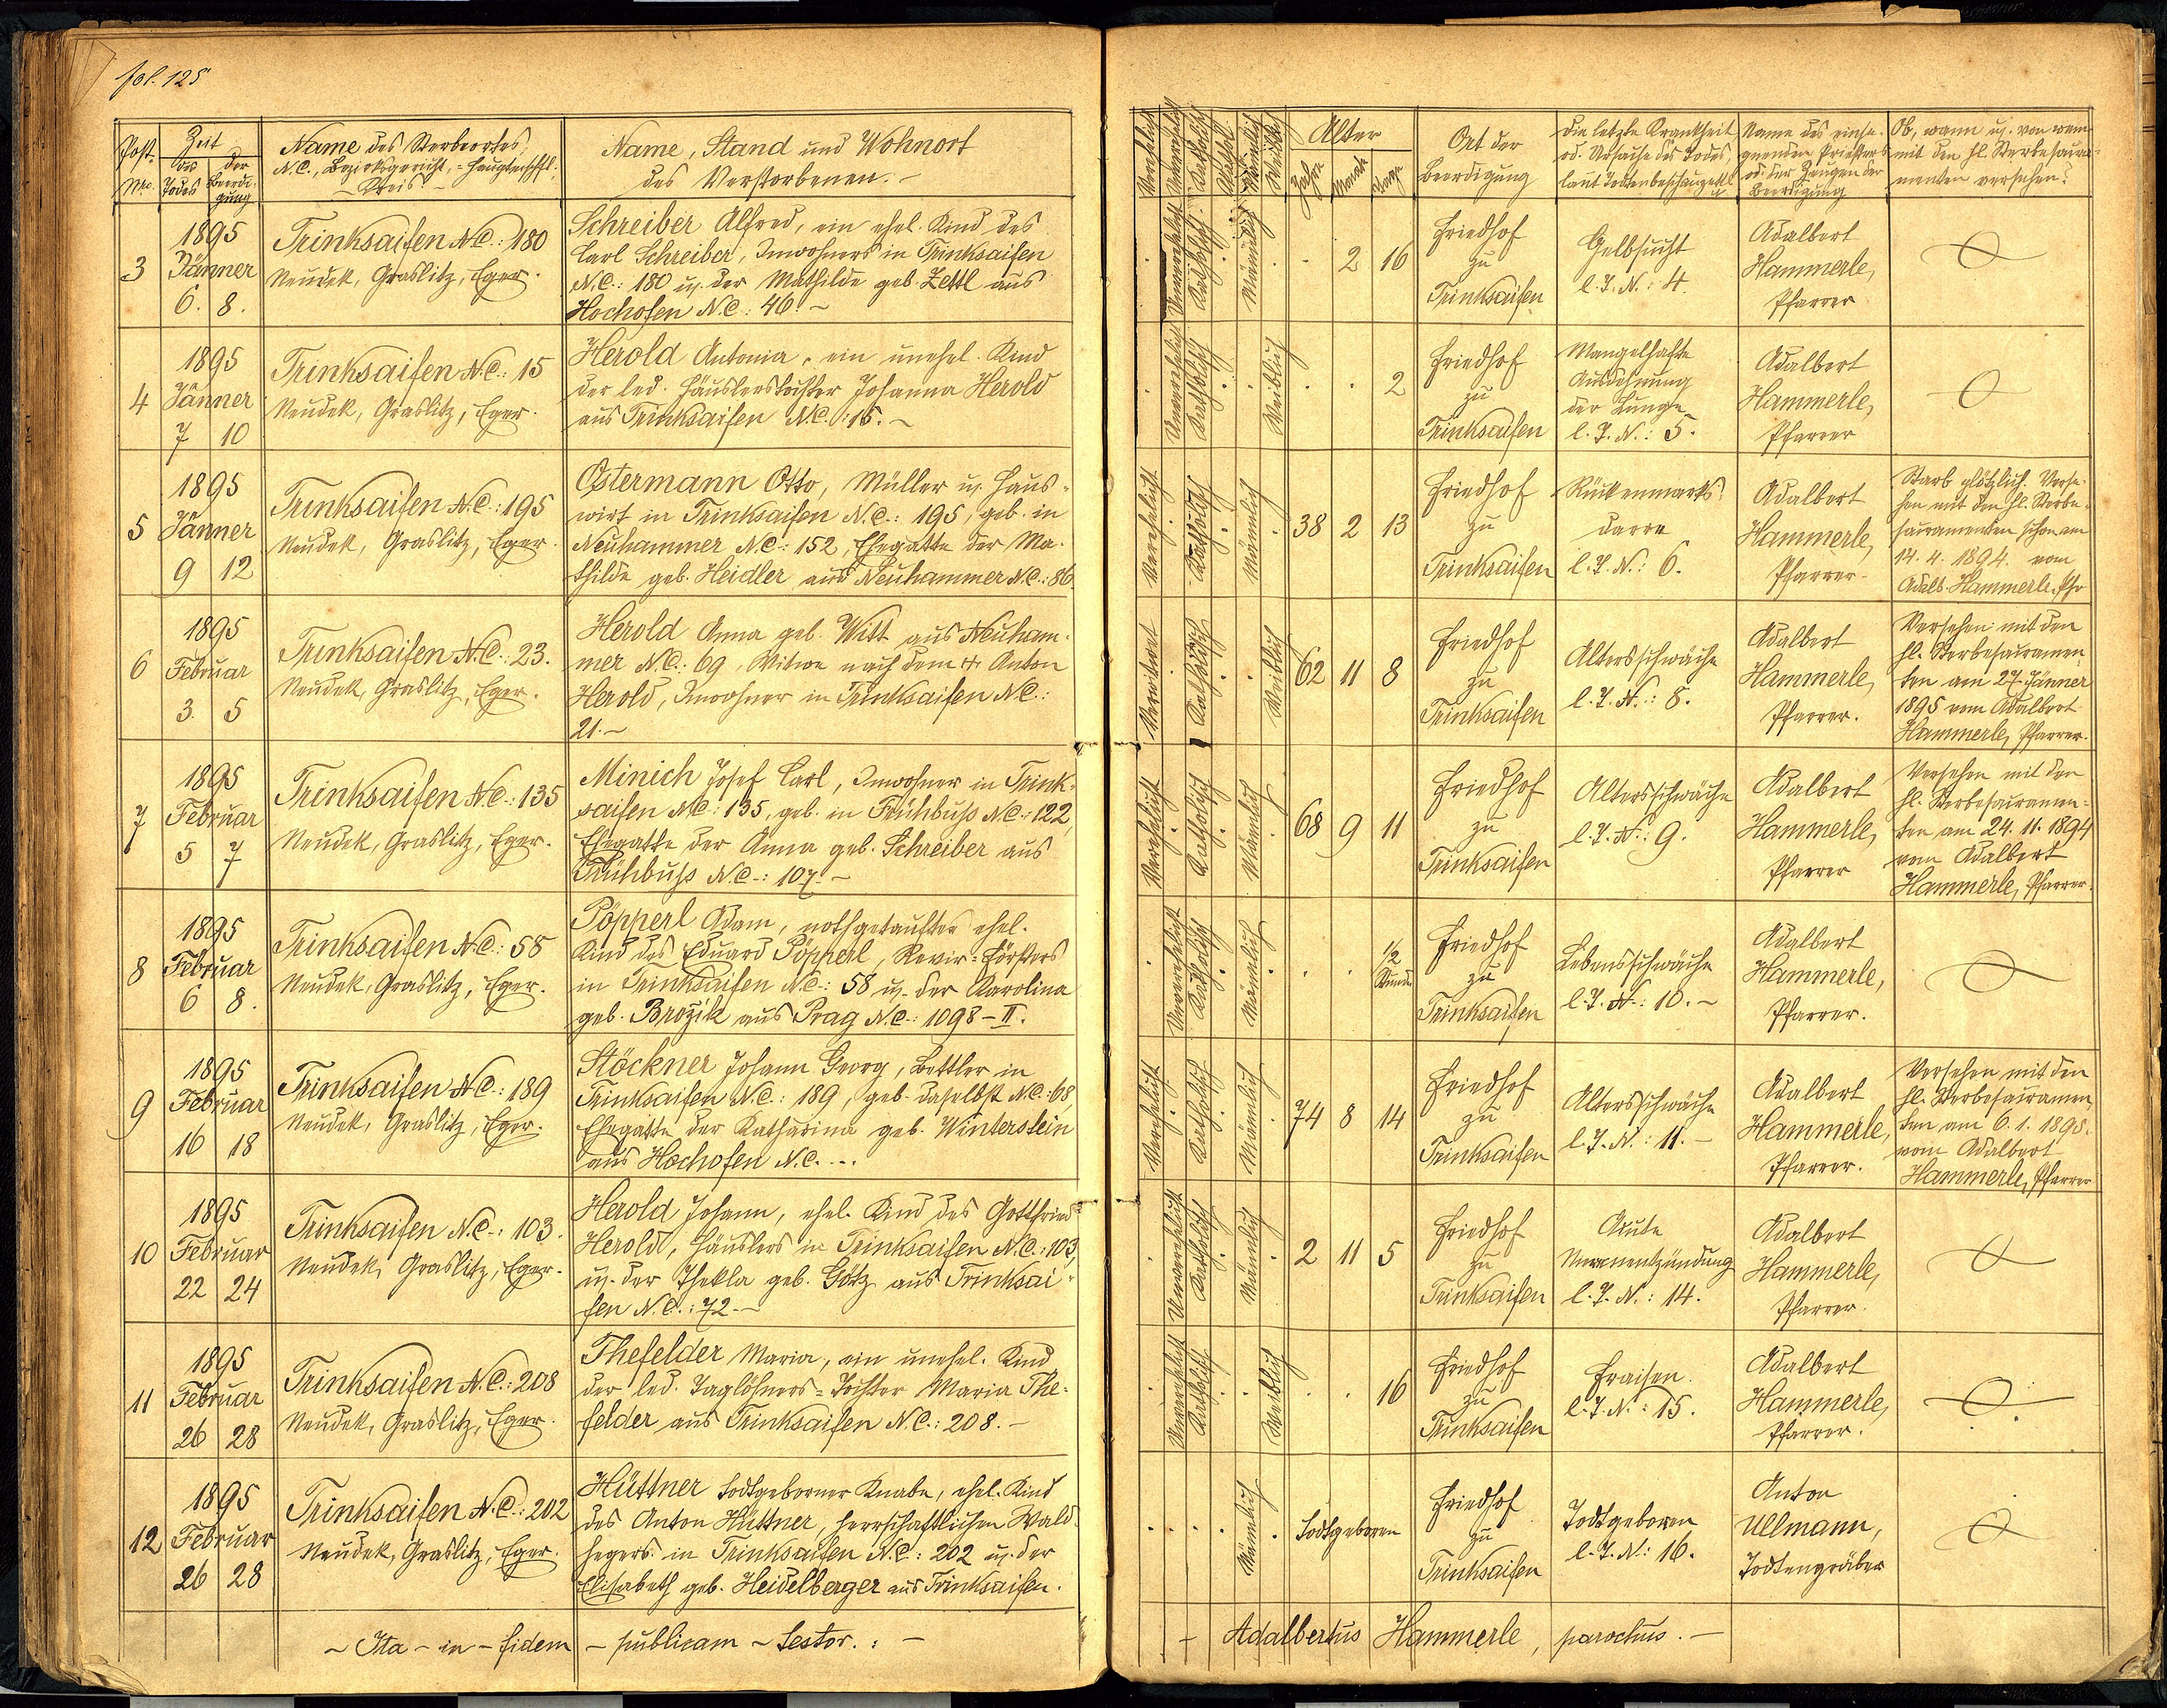 fol. 125
Post- Nro.
Zeit
des Todes
der Beerdi-
gung
Name des Sterbeortes,
N.C., Bezirksgericht,
Kreis
Name, Stand und Wohnort
des Verstorbenen. -
3
1895
Jänner
6. 8.
Trinksaifen N.C.: 180
Neudek, Graslitz, Eger.
Schreiber Alfred, ein ehel. Kind des
Carl Schreiber, Inwohners in Trinksaifen
N.C.: 180 u. der Mathilde geb. Zettl aus
Hochofen N.C.: 46. -
4
1895
Jänner
7 10
Trinksaifen N.C.: 15
Neudek, Graslitz, Eger.
Herold Antonia, ein unehel. Kind
der led. Häuslerstochter Johanna Herold
aus Trinksaifen N.C.: 15. -
5
1895
Jänner
9 12
Trinksaifen N.C.: 195
Neudek, Graslitz, Eger.
Ostermann Otto, Müller u. Haus-
wirt in Trinksaifen N.C.: 195, geb. in
Neuhammer N.C.: 152, Ehegatte der Ma-
thilde geb. Heidler aus Neuhammer N.C.: 86
6
1895
Februar
3. 5
Trinksaifen N.C.: 23.
Neudek, Graslitz, Eger.
Herold Anna geb. Witt aus Neuham-
mer N.C.: 69, Witwe nach dem Anton
Herold, Inwohner in Trinksaifen N.C.:
21. -
7
1895
Februar
5 7
Trinksaifen N.C.: 135
Neudek, Graslitz, Eger.
Minich Josef Carl, Inwohner in Trink-
saifen N.C.: 135, geb. in Frühbuß N.C.: 122,
Ehegatte der Anna geb. Schreiber aus
Frühbuß N.C.: 107. -
8
1895
Februar
6 8.
Trinksaifen N.C.: 58
Neudek, Graslitz, Eger.
Pöpperl Adam, nothgetauftes ehel.
Kind des Eduard Pöpperl, Revir-Försters
in Trinksaifen N.C.: 58 u. der Karolina
geb. Brožik aus Prag N.C.: 1098-II.
9
1895
Februar
16 18
Trinksaifen N.C.: 189
Neudek, Graslitz, Eger.
Stöckner Johann Georg, Bettler in
Trinksaifen N.C.: 189, geb. daselbst N.C.: 68,
Ehegatte der Katharina geb. Winterstein
aus Hochofen N.C. ...
10
1895
Februar
22 24
Trinksaifen N.C.: 103.
Neudek, Graslitz, Eger.
Herold Johann, ehel. Kind des Gottfried
Herold, Häuslers in Trinksaifen N.C.: 103,
u. der Thekla geb. Götz aus Trinksai-
fen N.C.: 72. -
11
1895
Februar
26 28
Trinksaifen N.C.: 208
Neudek, Graslitz, Eger.
Thefelder Maria, ein unehel. Kind
der led. Taglöhners-Tochter Maria The-
felder aus Trinksaifen N.C.: 208. -
12
1895
Februar
26 28
Trinksaifen N.C.: 202
Neudek, Graslitz, Eger.
Hüttner todtgeborner Knabe, ehel. Kind
des Anton Hüttner, herrschaftlichen Wald-
hegers in Trinksaifen N.C.: 202 u. der
Elisabeth geb. Heidelberger aus Trinksaifen.
- Ita - in - fidem - publicam - testor. : -
Verehelicht
Unverehelicht
Katholisch
Männlich
Weiblich
Alter
Jahre
Monate
Tage
Ort der
Beerdigung
Die letzte Krankheit
od. Ursache des Todes,
laut Todtenbeschauzettl
Name des einse-
gnenden Priesters
od. der Zeugen der
Beerdigung
Ob, wann u. von wem
mit den hl. Sterbesacra-
menten versehen?
Unverehelicht
Katholisch
Männlich
2 16
Friedhof
zu
Trinksaifen
Gelbsucht
l. T. N.: 4.
Adalbert
Hammerle,
Pfarrer
Unverehelicht
Katholisch
Weiblich
2
Friedhof
zu
Trinksaifen
Mangelhafte
Ausdehnung
der Lunge
l. T. N.: 5.
Adalbert
Hammerle,
Pfarrer
Verehelicht
Katholisch
Männlich
38 2 13
Friedhof
zu
Trinksaifen
Rückenmarks-
darre
l. T. N.: 6.
Adalbert
Hammerle,
Pfarrer.
Starb plötzlich. Verse-
hen mit den hl. Sterbe-
sacramenten schon am
14. 4. 1894. vom
Adalb. Hammerle, Pfr
Verwitwet
Katholisch
Weiblich
62 11 8
Friedhof
zu
Trinksaifen
Altersschwäche
l. T. N.: 8.
Adalbert
Hammerle,
Pfarrer.
Versehen mit den
hl. Sterbesacramen-
ten am 27. Jänner
1895 vom Adalbert
Hammerle, Pfarrer.
Verehelicht
Katholisch
Männlich
68 9 11
Friedhof
zu
Trinksaifen
Altersschwäche
l. T. N.: 9.
Adalbert
Hammerle,
Pfarrer
Versehen mit den
hl. Sterbesacramen-
ten am 24. 11. 1894
vom Adalbert
Hammerle, Pfarrer.
Unverehelicht
Katholisch
Männlich
1/2
Stunde
Friedhof
zu
Trinksaifen
Lebensschwäche
l. T. N.: 10. -
Adalbert
Hammerle,
Pfarrer.
Verehelicht
Katholisch
Männlich
74 8 14
Friedhof
zu
Trinksaifen
Altersschwäche
l. T. N.: 11. -
Adalbert
Hammerle,
Pfarrer.
Versehen mit den
hl. Sterbesacramen-
ten am 6. 1. 1895.
vom Adalbert
Hammerle, Pfarrer
Unverehelicht
Katholisch
Männlich
2 11 5
Friedhof
zu
Trinksaifen
Acute
Nierenentzündung
l. T. N.: 14.
Adalbert
Hammerle,
Pfarrer.
Unverehelicht
Katholisch
Weiblich
16
Friedhof
zu
Trinksaifen
Fraisen.
l. T. N.: 15.
Adalbert
Hammerle,
Pfarrer.
Männlich
Todtgeboren
Friedhof
zu
Trinksaifen
Todtgeboren
l. T. N.: 16.
Anton
Ullmann,
Todtengräber
- Adalbertus Hammerle, parochus. -